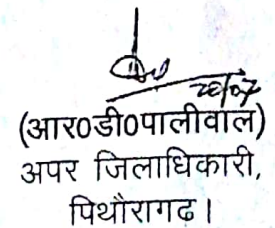 (आर0डी0पालीवाल)
अपर जिलाधिकारी,
पिथौरागढ।